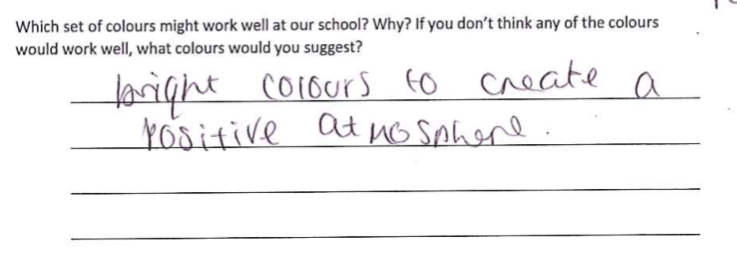 Which set of colours might work well at our school? Why? If you don't think any of the colours
would work well, what colours would you suggest?
bright colours to create a
positive atmosphere.